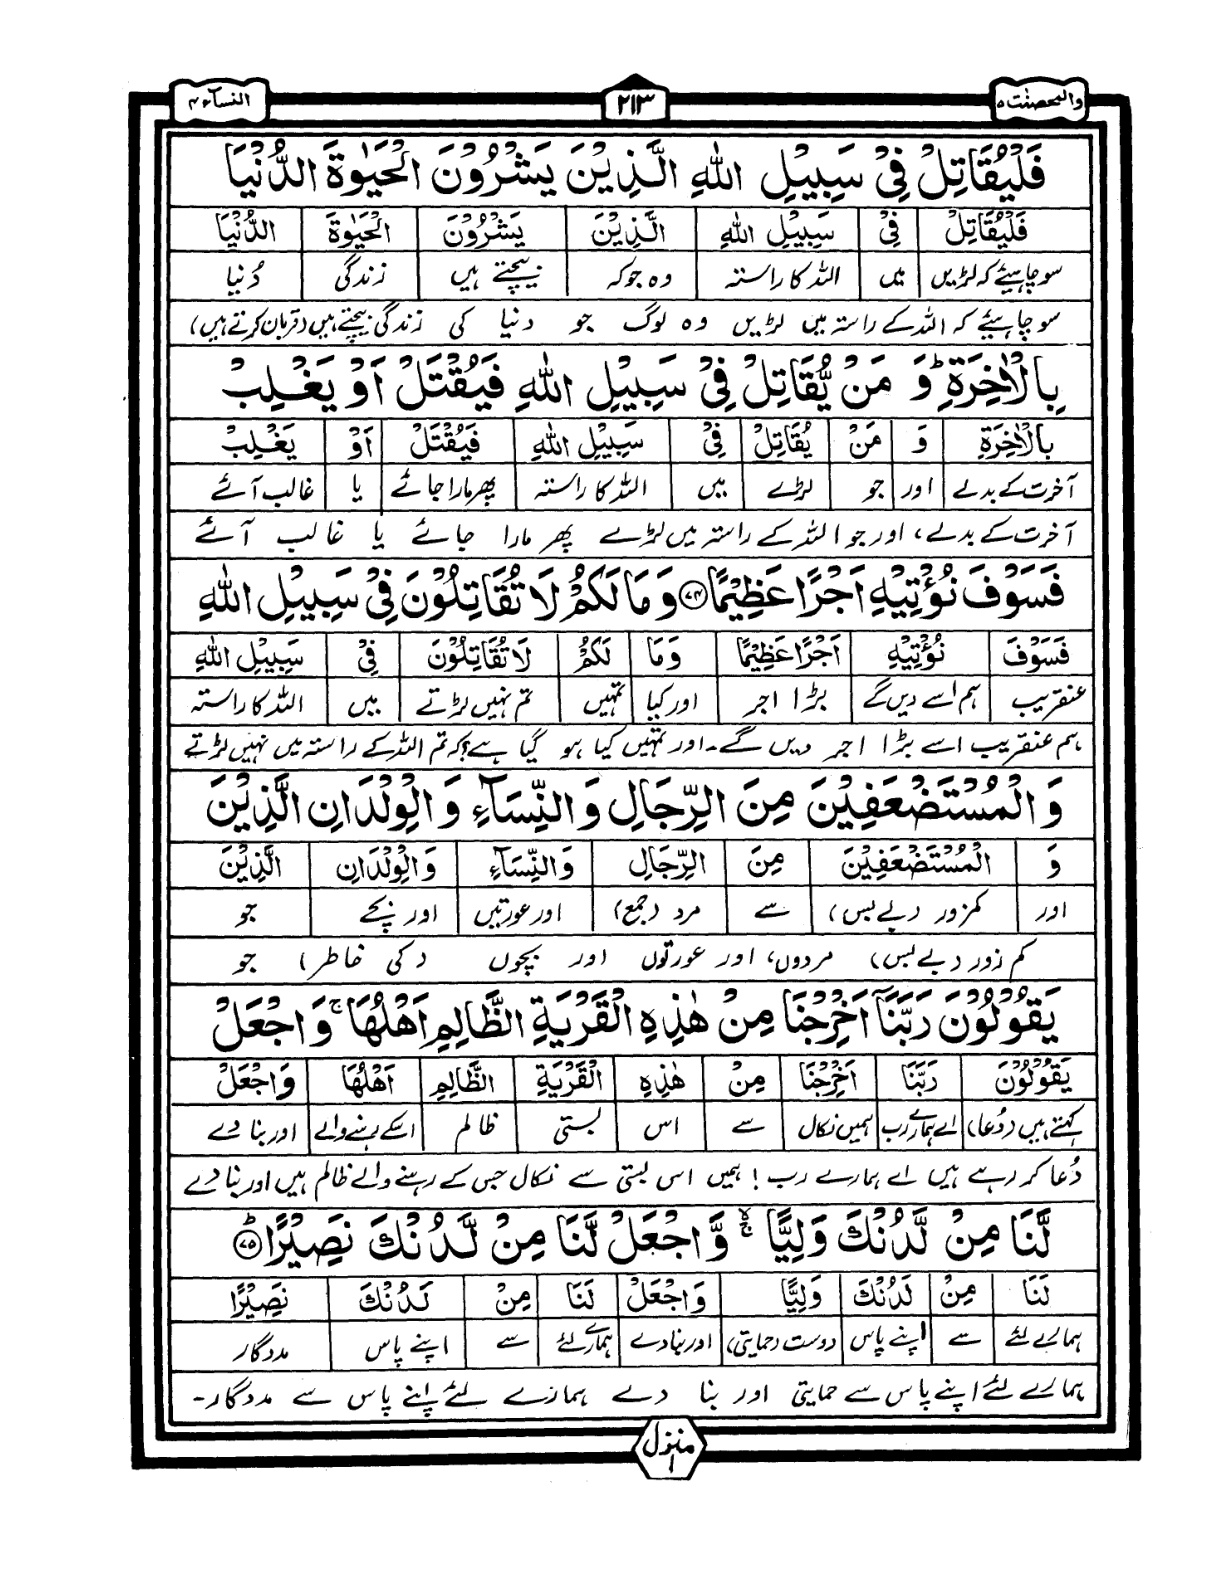 والمحصنٰت ٥ ٢١٣ النسآء ٤
فَلْيُقَاتِلْ فِيْ سَبِيْلِ اللّٰهِ الَّذِيْنَ يَشْرُوْنَ الْحَيٰوةَ الدُّنْيَا
فَلْيُقَاتِلْ فِيْ سَبِيْلِ اللّٰهِ الَّذِيْنَ يَشْرُوْنَ الْحَيٰوةَ الدُّنْيَا
سو چاہیئے کہ لڑیں میں اللہ کا راستہ وہ جو کہ بیچتے ہیں زندگی دُنیا
سو چاہیئے کہ اللہ کے راستہ میں لڑیں وہ لوگ جو دنیا کی زندگی بیچتے ہیں (قربان کرتے ہیں)
بِالْاٰخِرَةِ ؕ وَ مَنْ يُّقَاتِلْ فِيْ سَبِيْلِ اللّٰهِ فَيُقْتَلْ اَوْ يَغْلِبْ
بِالْاٰخِرَةِ وَ مَنْ يُقَاتِلْ فِيْ سَبِيْلِ اللّٰهِ فَيُقْتَلْ اَوْ يَغْلِبْ
آخرت کے بدلے اور جو لڑے میں اللہ کا راستہ پھر مارا جائے یا غالب آئے
آخرت کے بدلے، اور جو اللہ کے راستہ میں لڑے پھر مارا جائے یا غالب آئے
فَسَوْفَ نُؤْتِيْهِ اَجْرًا عَظِيْمًا ۝٧٤ وَمَا لَكُمْ لَا تُقَاتِلُوْنَ فِيْ سَبِيْلِ اللّٰهِ
فَسَوْفَ نُؤْتِيْهِ اَجْرًا عَظِيْمًا وَمَا لَكُمْ لَا تُقَاتِلُوْنَ فِيْ سَبِيْلِ اللّٰهِ
عنقریب ہم اسے دیں گے بڑا اجر اور کیا تمہیں تم نہیں لڑتے میں اللہ کا راستہ
ہم عنقریب اسے بڑا اجر دیں گے۔ اور تمہیں کیا ہو گیا ہے؟ کہ تم اللہ کے راستہ میں نہیں لڑتے
وَ الْمُسْتَضْعَفِيْنَ مِنَ الرِّجَالِ وَالنِّسَآءِ وَ الْوِلْدَانِ الَّذِيْنَ
وَ الْمُسْتَضْعَفِيْنَ مِنَ الرِّجَالِ وَالنِّسَآءِ وَالْوِلْدَانِ الَّذِيْنَ
اور کمزور (بے بس) سے مرد (جمع) اور عورتیں اور بچے جو
کم زور (بے بس) مردوں، اور عورتوں اور بچوں (کی خاطر) جو
يَقُوْلُوْنَ رَبَّنَآ اَخْرِجْنَا مِنْ هٰذِهِ الْقَرْيَةِ الظَّالِمِ اَهْلُهَا ۚ وَ اجْعَلْ
يَقُوْلُوْنَ رَبَّنَا اَخْرِجْنَا مِنْ هٰذِهِ الْقَرْيَةِ الظَّالِمِ اَهْلُهَا وَاجْعَلْ
کہتے ہیں (دُعا) اے ہمارے رب ہمیں نکال سے اس بستی ظالم اسکے رہنے والے اور بنا دے
دُعا کر رہے ہیں اے ہمارے رب! ہمیں اس بستی سے نکال جس کے رہنے والے ظالم ہیں اور بنا دے
لَّنَا مِنْ لَّدُنْكَ وَلِيًّا ۙۚ وَّ اجْعَلْ لَّنَا مِنْ لَّدُنْكَ نَصِيْرًا ؕ۝٧٥
لَنَا مِنْ لَدُنْكَ وَلِيًّا وَاجْعَلْ لَنَا مِنْ لَدُنْكَ نَصِيْرًا
ہمارے لئے سے اپنے پاس دوست (حمایتی) اور بنا دے ہمارے لئے سے اپنے پاس مددگار
ہمارے لئے اپنے پاس سے حمایتی اور بنا دے ہمارے لئے اپنے پاس سے مددگار۔
منزل ١